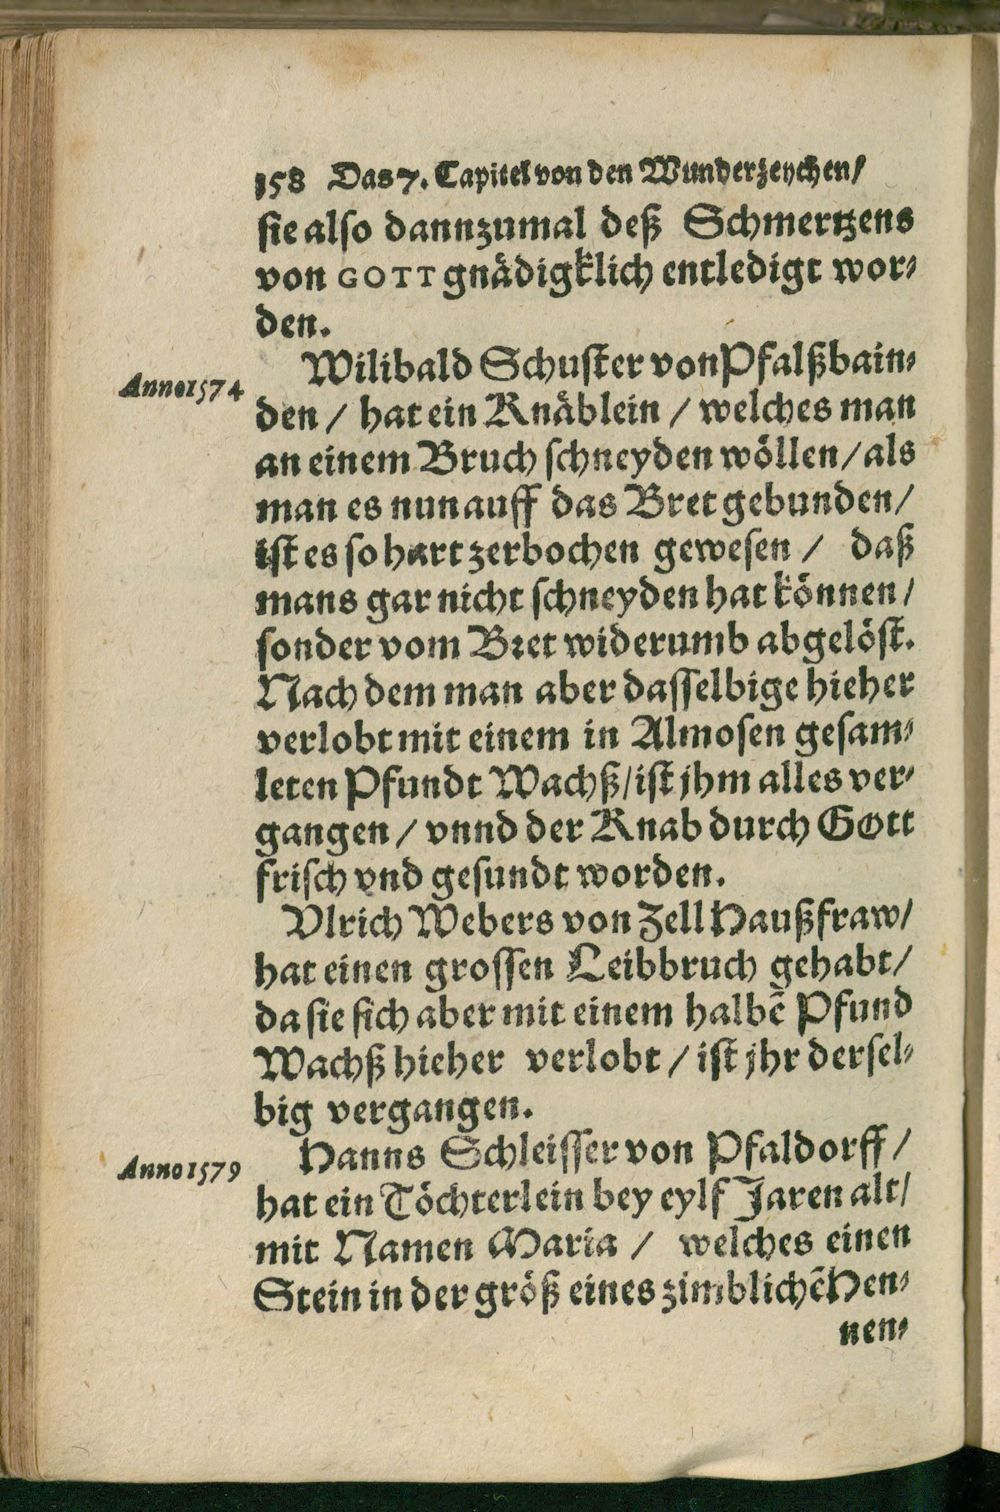 158 Das 7. Capitel von den Wunderzeychen/
sie also dannzumal deß Schmertzens
von GOTT gnädigklich entledigt wor-
den.
Anno 1574
Wilibald Schuster von Pfalßbain-
den / hat ein Knäblein / welches man
an einem Bruch schneyden wöllen / als
man es nun auff das Bret gebunden /
ist es so hart zerbochen gewesen / daß
mans gar nicht schneyden hat können /
sonder vom Bret widerumb abgelöst.
Nach dem man aber dasselbige hieher
verlobt mit einem in Almosen gesam-
leten Pfundt Wachß / ist jhm alles ver-
gangen / vnnd der Knab durch GOtt
frisch vnd gesundt worden.
Vlrich Webers von Zell Haußfraw /
hat einen grossen Leibbruch gehabt /
da sie sich aber mit einem halbẽ Pfund
Wachß hieher verlobt / ist jhr dersel-
big vergangen.
Anno 1579
Hanns Schleisser von Pfaldorff /
hat ein Töchterlein bey eylf Jaren alt /
mit Namen Maria / welches einen
Stein in der größ eines zimblichẽ Hen-
nen-